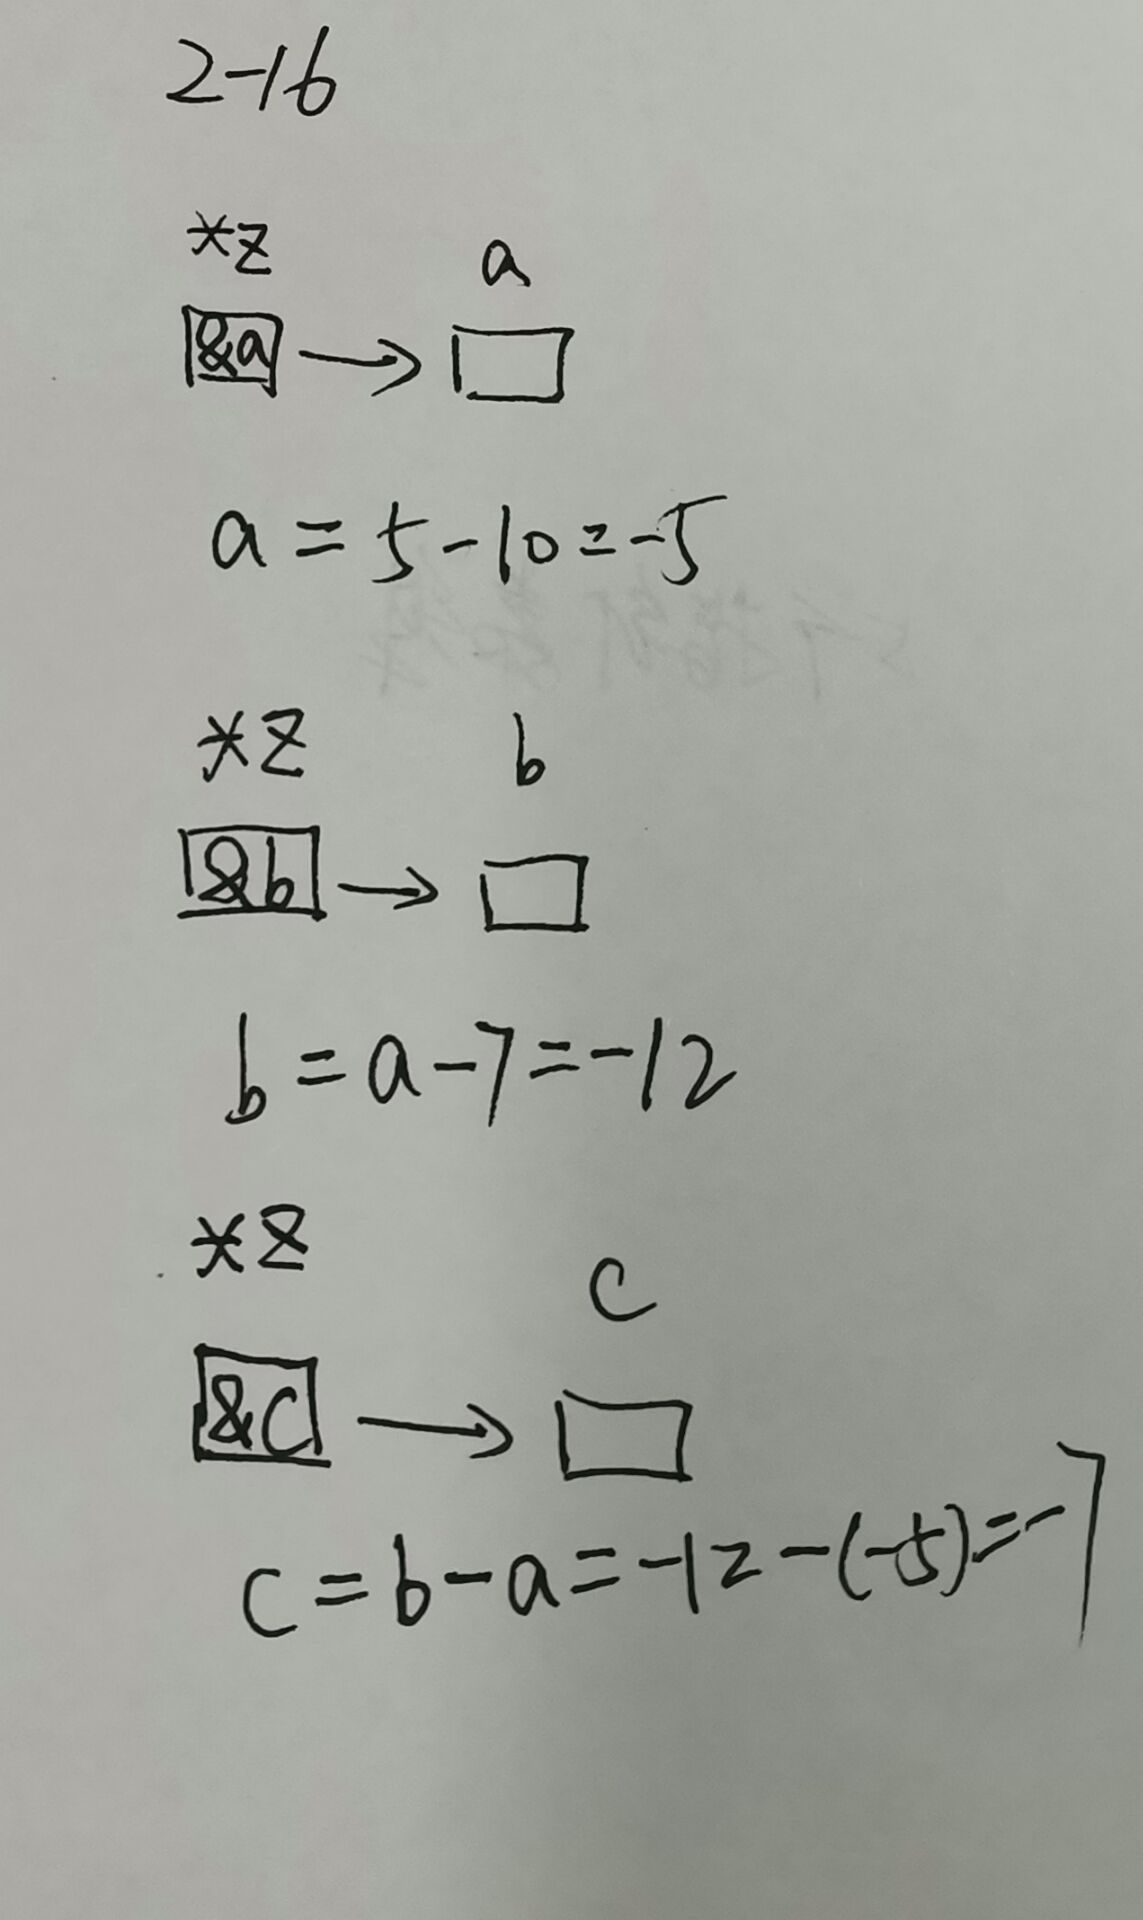 2-16
*z a
&a →
a = 5 - 10 = -5
*z b
&b →
b = a - 7 = -12
*z
c
&c →
c = b - a = -12 - (-5) = -7